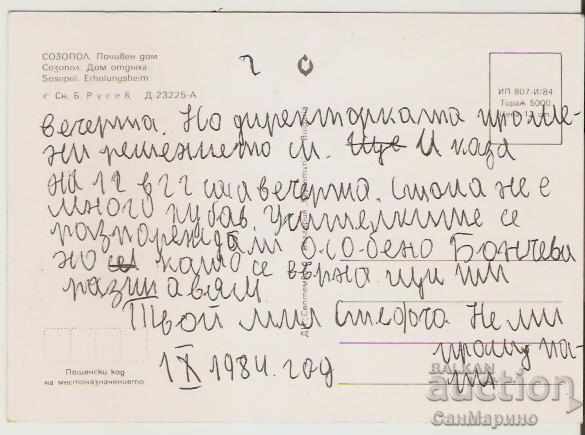 СОЗОПОЛ. Почивен дом
Созопол. Дом отдыха
Sosopol. Erholungsheim
Сн. Б. Русев Д-23225-А
ИП 807-И/84
Тираж 5000
вечерта. Но директорката проме-
ни решението си. Ще И каза
на 12 в 22 часа вечерта. Стола не е
много хубав. Учителките се
разпореждали о-со-бено Бончева
но като се върна ще ти
разправям
Твой мил Стефчо. Не ми
пращ па-
ри
1 IX 1984. год
Пощенски код
на местоназначението
BALKAN
auction
СанМарино